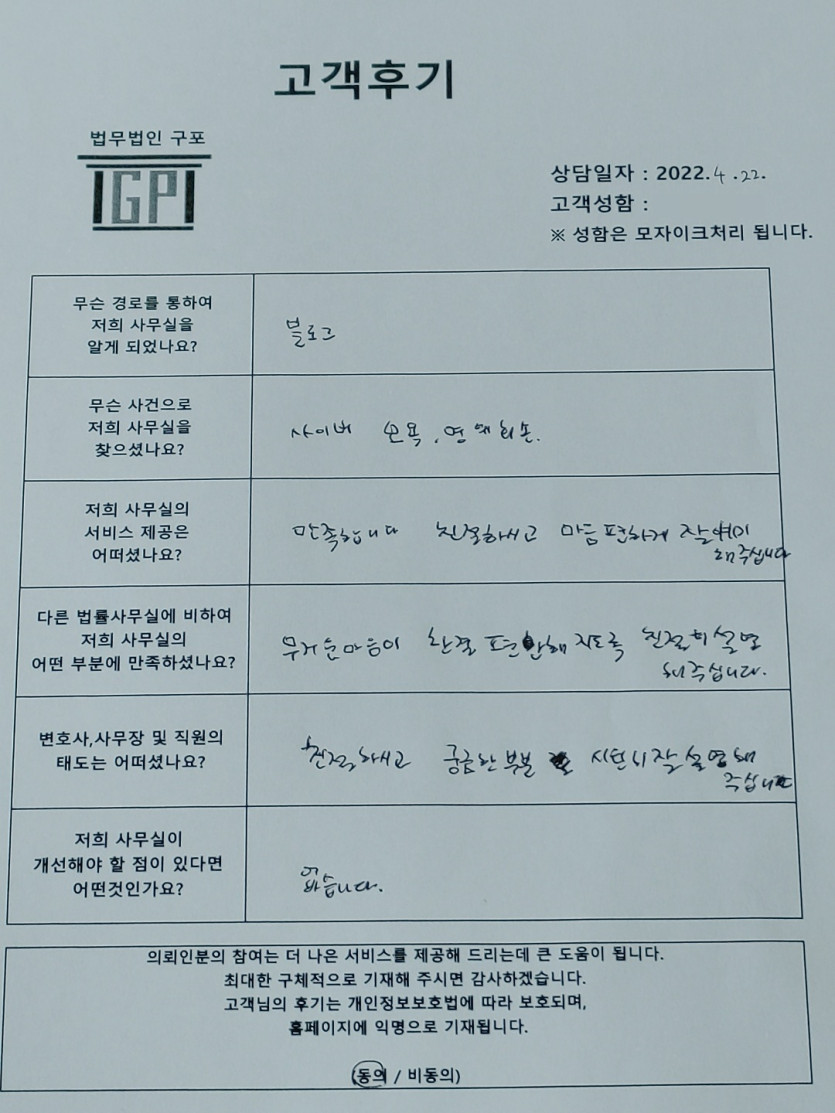 고객후기
법무법인 구포
IGPI
상담일자 : 2022.4.22.
고객성함 :
※ 성함은 모자이크처리 됩니다.
무슨 경로를 통하여
저희 사무실을
알게 되었나요?
블로그
무슨 사건으로
저희 사무실을
찾으셨나요?
사이버 모욕, 명예훼손.
저희 사무실의
서비스 제공은
어떠셨나요?
만족합니다 친절하시고 마음편하게 잘얘기
해주십니다
다른 법률사무실에 비하여
저희 사무실의
어떤 부분에 만족하셨나요?
무거운마음이 한결 편안해지도록 친절히설명
해주십니다.
변호사,사무장 및 직원의
태도는 어떠셨나요?
친절하시고 궁금한부분 잘설명해
주십니다
저희 사무실이
개선해야 할 점이 있다면
어떤것인가요?
없습니다.
의뢰인분의 참여는 더 나은 서비스를 제공해 드리는데 큰 도움이 됩니다.
최대한 구체적으로 기재해 주시면 감사하겠습니다.
고객님의 후기는 개인정보보호법에 따라 보호되며,
홈페이지에 익명으로 기재됩니다.
(동의 / 비동의)